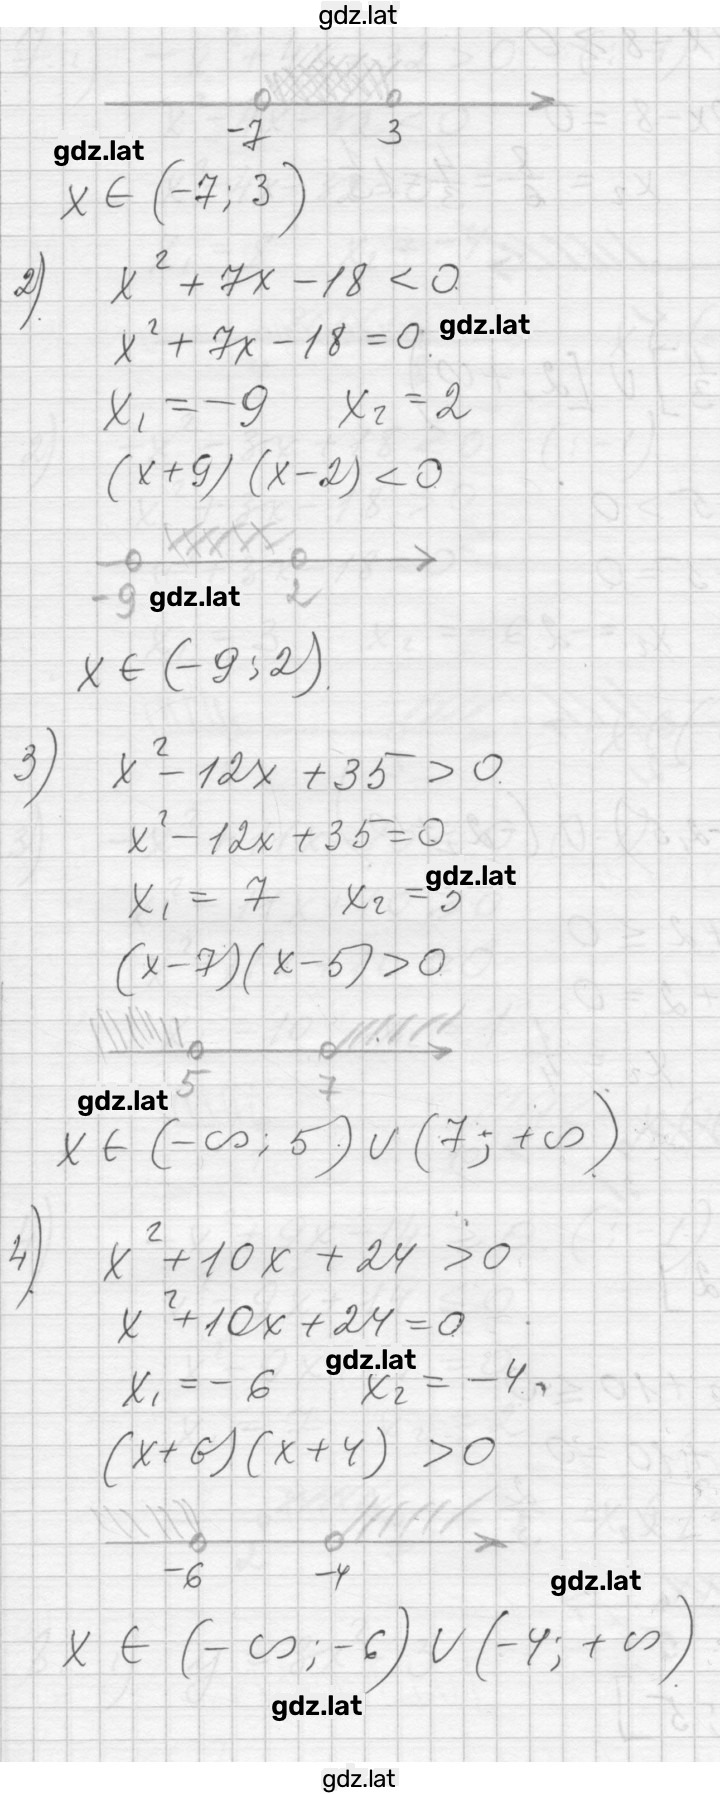 gdz.lat
-7 3
gdz.lat
x ∈ (-7; 3)
2) x² + 7x - 18 < 0
x² + 7x - 18 = 0
gdz.lat
x₁ = -9 x₂ = 2
(x+9) (x-2) < 0
-9 2
gdz.lat
x ∈ (-9; 2).
3) x² - 12x + 35 > 0
x² - 12x + 35 = 0
gdz.lat
x₁ = 7 x₂ = 5
(x-7)(x-5) > 0
5 7
gdz.lat
x ∈ (-∞; 5) ∪ (7; +∞)
4) x² + 10x + 24 > 0
x² + 10x + 24 = 0
gdz.lat
x₁ = -6 x₂ = -4
(x+6)(x+4) > 0
-6 -4
gdz.lat
x ∈ (-∞; -6) ∪ (-4; +∞)
gdz.lat
gdz.lat